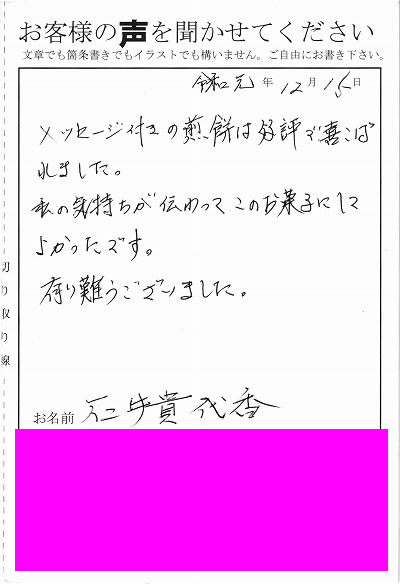 お客様の声を聞かせてください
文章でも箇条書きでもイラストでも構いません。ご自由にお書き下さい。
令和元年12月15日
メッセージ付きの煎餅は好評で喜こば
れました。
私の気持ちが伝わってこのお菓子にして
よかったです。
有り難うございました。
お名前 貴代香
切り取り線